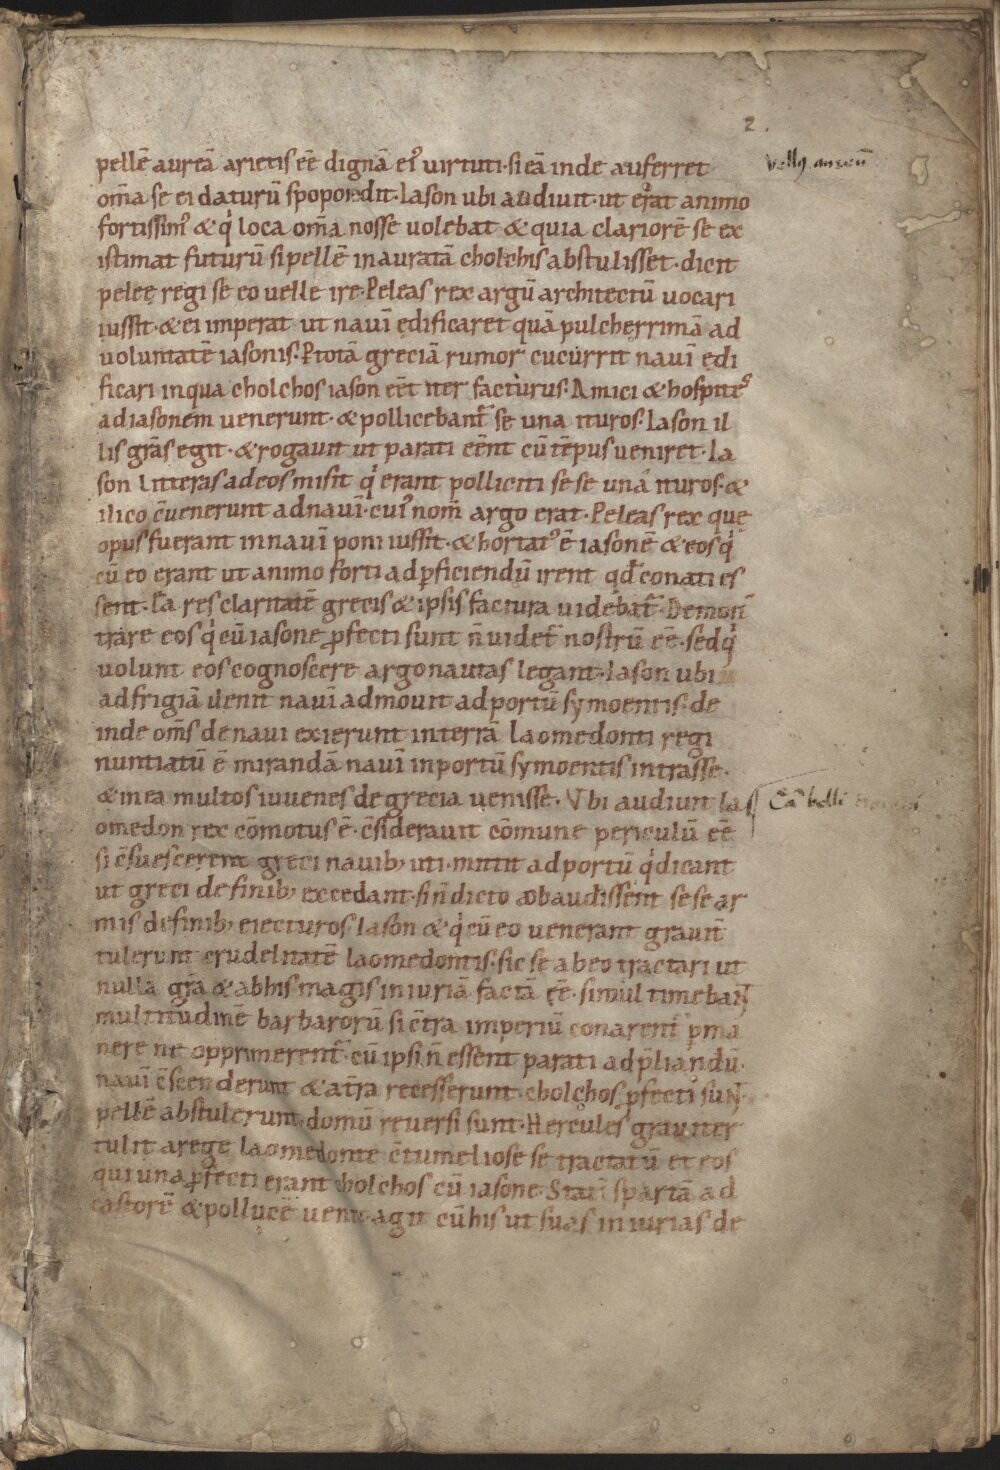 2.
pellē aureā arietis eē dignā ei᷒ uirtuti·si eā inde auferret
Vell᷒ aureū
om̄a se ei daturū spopondit·Iason ubi audiuit·ut erat animo
fortissim᷒ & qͥ loca om̄a nosse uolebat & quia clariorē se ex
istimat futurū si pellē inauratā cholchis abstulisset·dicit
peleę regi se eo uelle ire·Peleas rex argū architectū uocari
iussit·& ei imperat ut nauī ędificaret quā pulcherrimā ad
uoluntatē iasonis·P totā greciā rumor cucurrit nauī ędi
ficari in qua cholchos iason eēt iter facturus·Amici & hospites
ad iasonem uenerunt·& pollicebant᷑ se una ituros·Iason il
lis grās egit·& rogauit ut parati eēnt cū tēpus ueniret·Ia
son litteras ad eos misit qͥ erant polliciti sese una ituros·&
ilico c̄uenerunt ad nauī·cui᷒ nom̄ argo erat·Peleas rex quę
opus fuerant in nauī poni iussit·& hortat᷒ ē iasonē & eos qͥ
cū eo erant ut animo forti ad p̱ficiendū irent qd̄ conati es
sent·Ea res claritatē grecis & ipsis factura uidebat᷑·Demon
trare eos qͥ cū iasone p̱fecti sunt n̄ uidet᷑ nostrū eē·sed qͥ
uolunt eos cognoscere argonautas legant·Iason ubi
ad frigiā uenit nauī admouit ad portū symoentis·de
inde om̄s de naui exierunt in terrā laomedonti regi
nuntiatū ē mirandā nauī in portū symoentis intrasse·
& in ea multos iuuenes de grecia uenisse·Vbi audiuit la
Cā belli
omedon rex cōmotus ē·c̄siderauit cōmune periculū eē
si c̄suescerent greci nauib; uti·mittit ad portū qͥ dicant
ut greci de finib; excedant·si n̄ dicto obaudissent sese ar
mis de finib; eiecturos·Iason & qͥ cū eo uenerant grauit᷑
tulerunt crudelitatē laomedontis·sic se ab eo tractari ut
nulla grā & ab his magis iniuriā factā eē·simul timebant
multitudinē barbarorū si c̄tra imperiū conarent᷑ p̱ma
nere ne opprimerent᷑·cū ipsi n̄ essent parati ad p̄liandū·
nauī c̄scenderunt & a t̄ra recesserunt·cholchos p̱fecti sunt
pellē abstulerunt·domū reuersi sunt·Hercules grauiter
tulit a rege laomedonte c̄tumeliose se tractatū et eos
qui una p̱fecti erant cholchos cū iasone·Statī spartā ad
castorē & pollucē uenit·agit cū his ut suas iniurias de